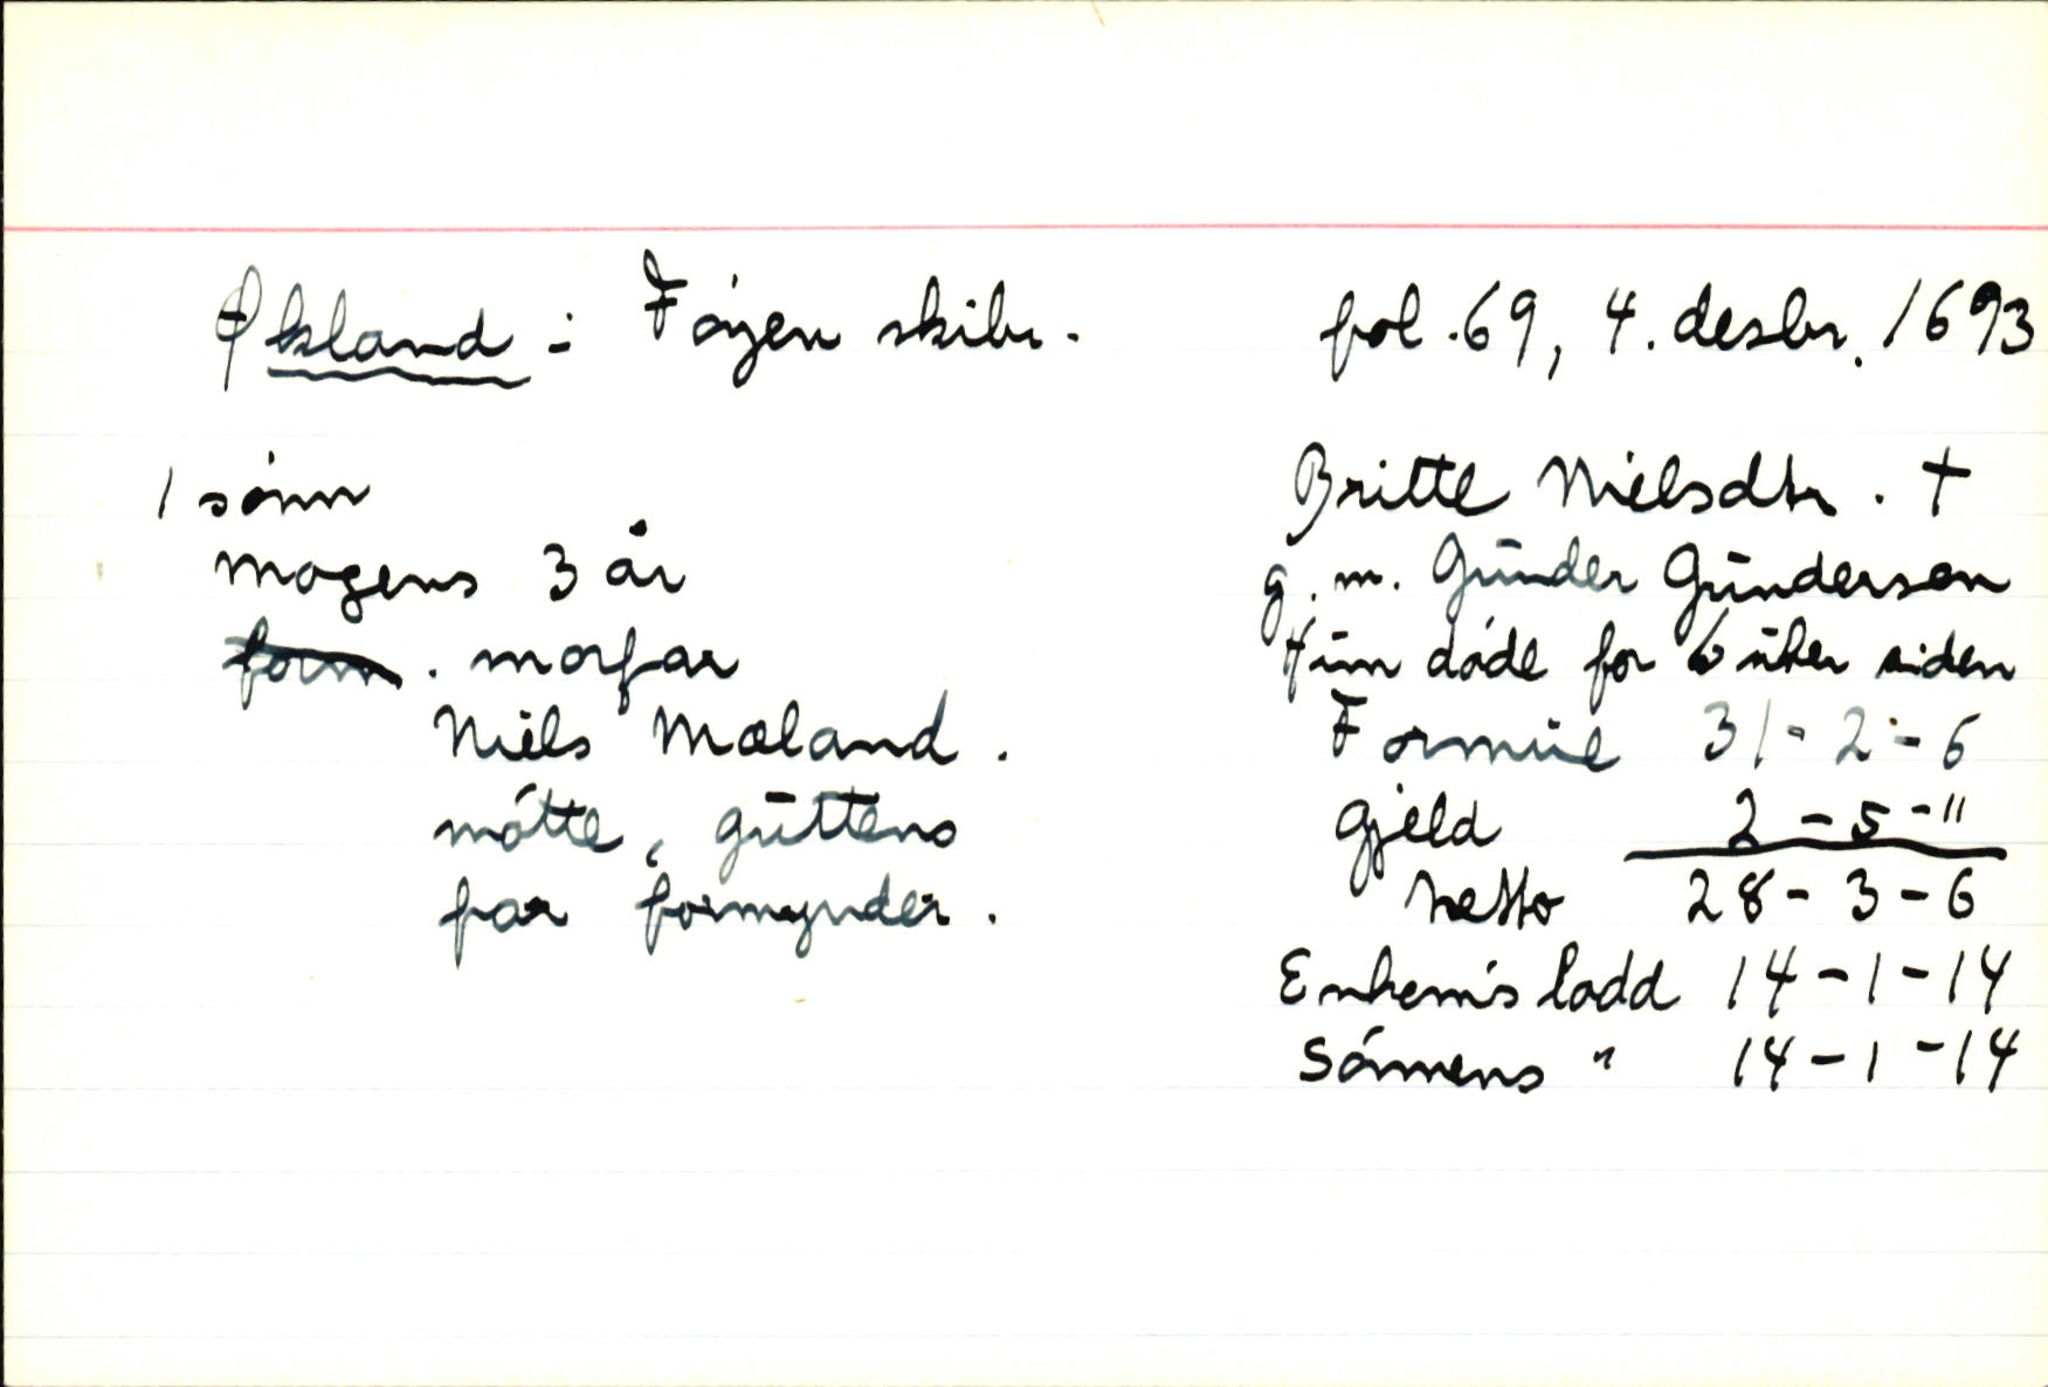 Økland : Føyen skibr. fol. 69, 4. desbr. 1693
1 sønn
Mogens 3 år
form. morfar
Niels Mæland.
møtte, guttens
far formynder.
Britte Nielsdtr. †
g. m. Gunder Gunderson
Hun døde for 6 uker siden
Formue 31 - 2 - 6
Gjeld 2 - 5 - "
Netto 28 - 3 - 6
Enkem's lodd 14 - 1 - 14
Sønnens " 14 - 1 - 14